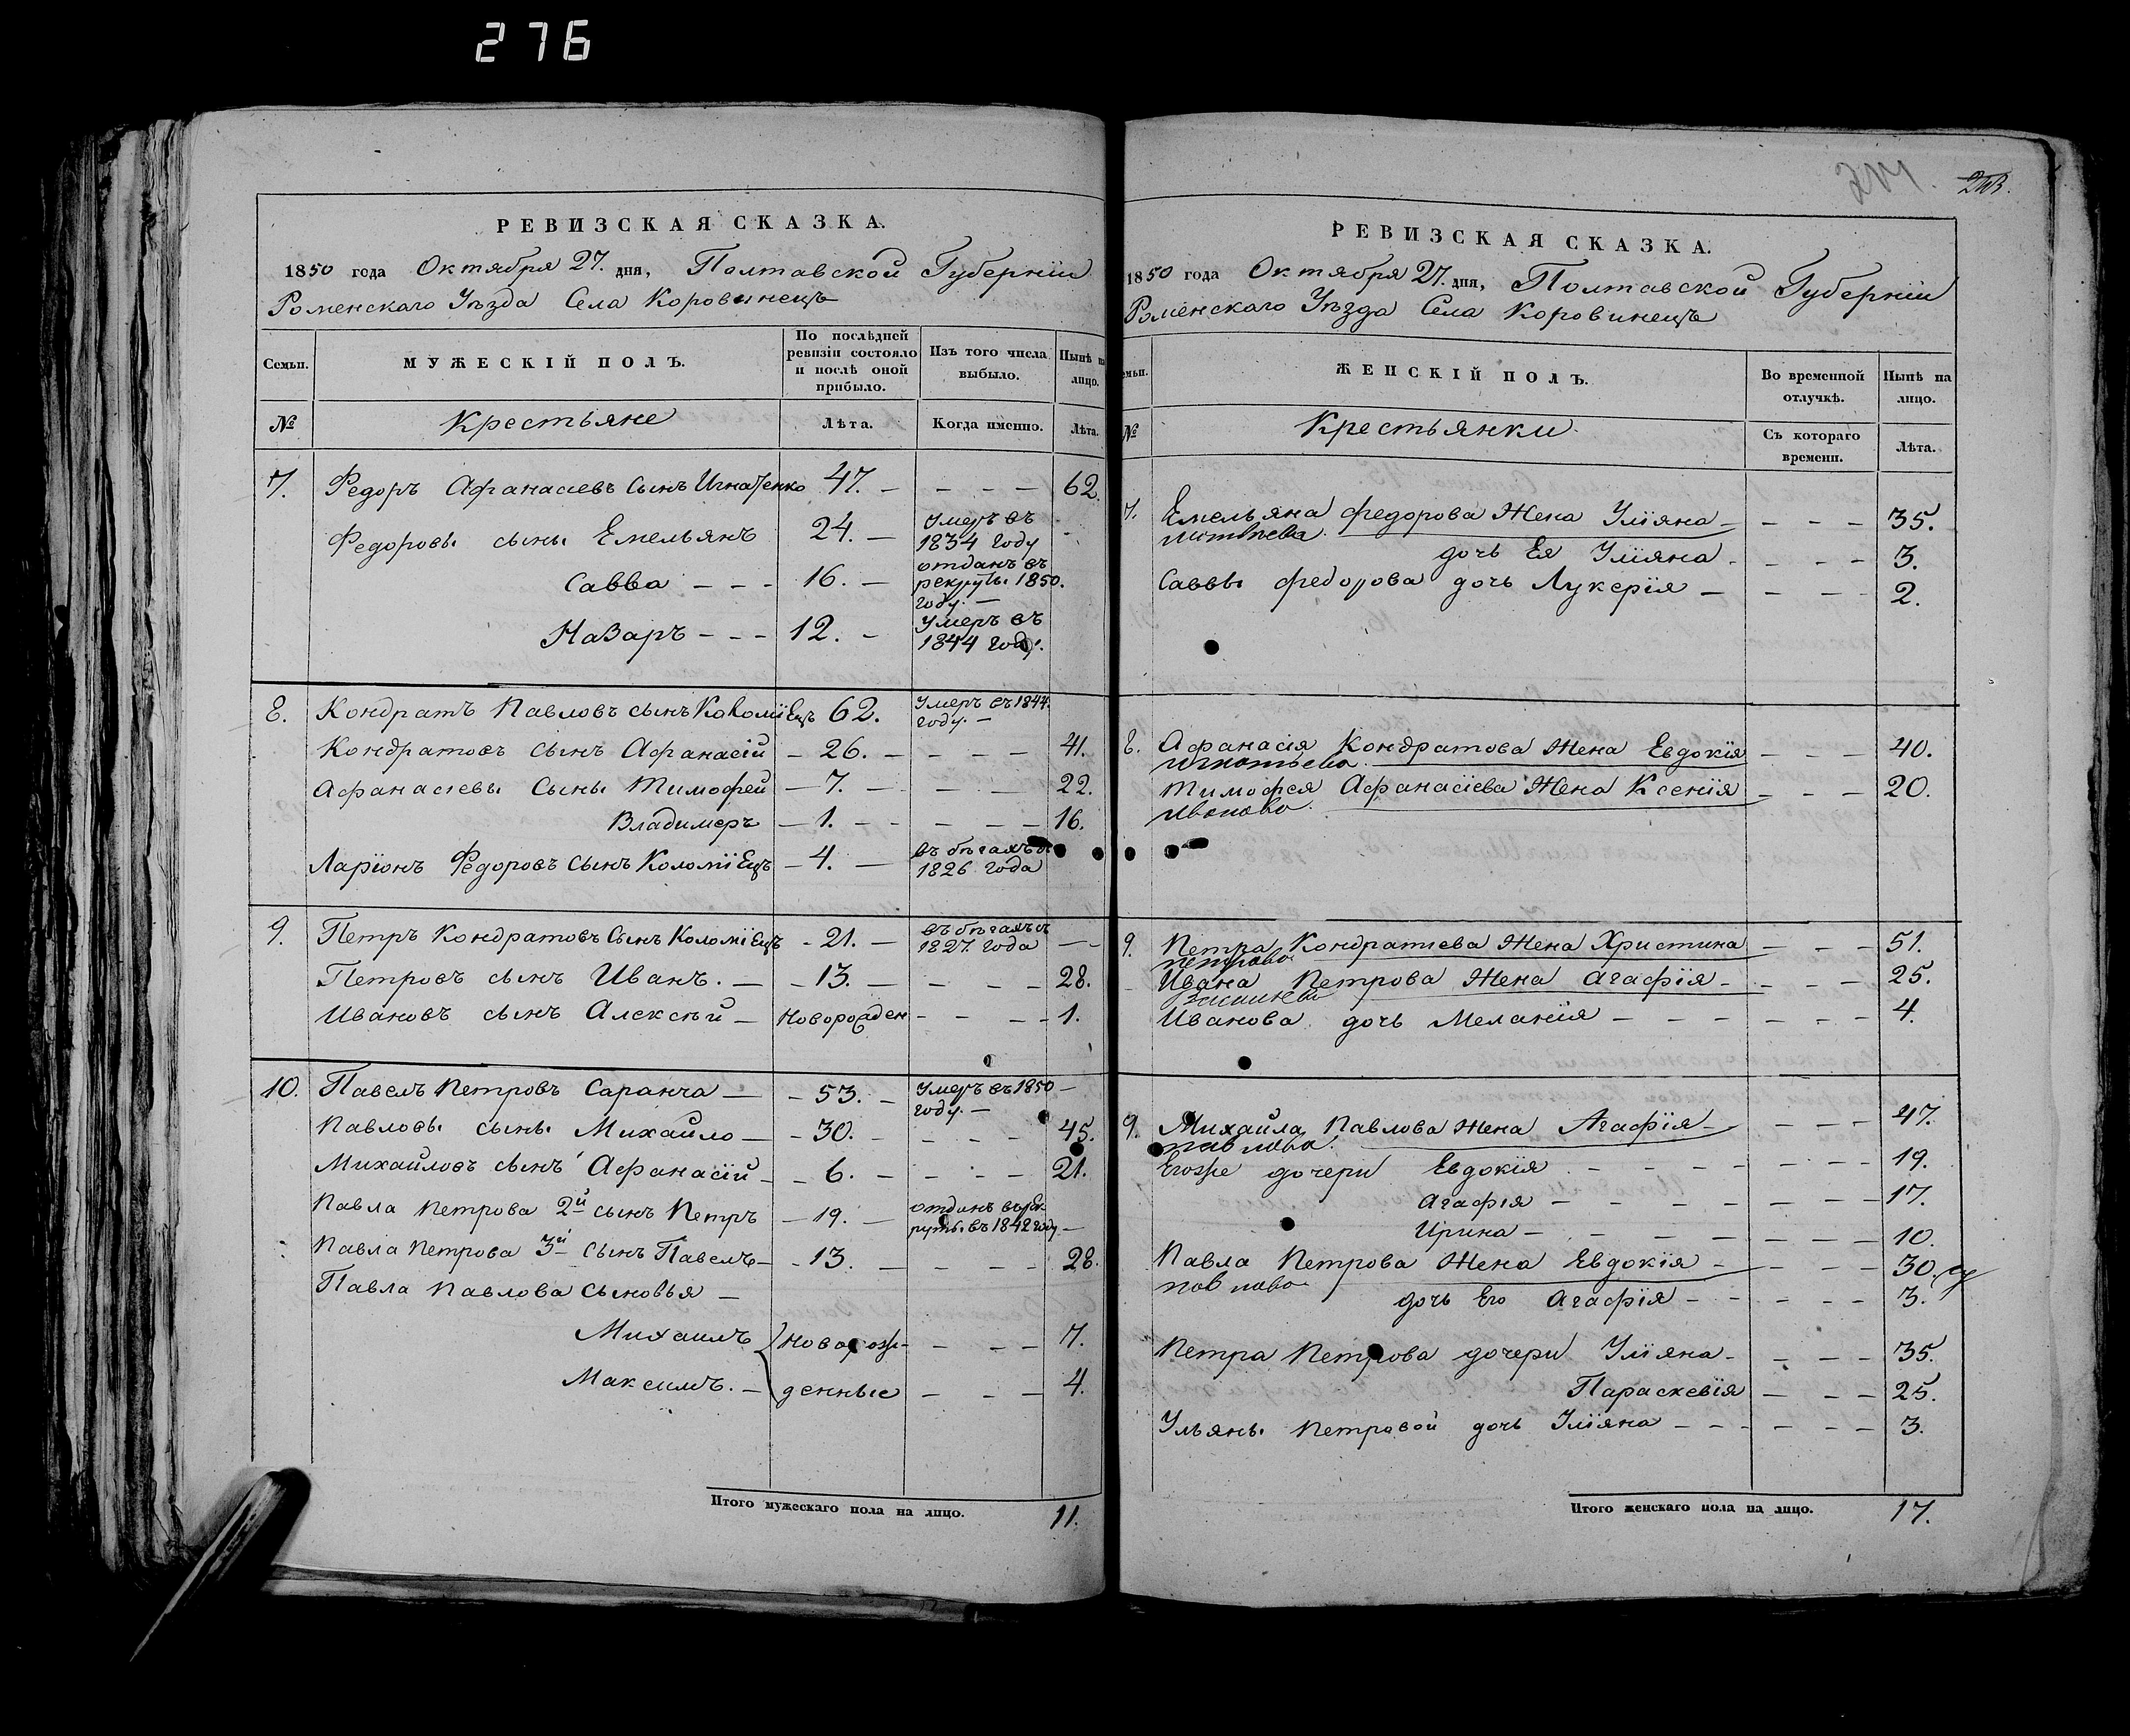 276
РЕВИЗСКАЯ СКАЗКА.
1850 года Октября 27. дня, Полтавской Губерніи
Роменскаго Уѣзда Села Коровинецъ
Семьи.
МУЖЕСКІЙ ПОЛЪ.
По послѣдней ревизіи состояло и послѣ оной прибыло.
Изъ того числа выбыло.
Нынѣ на лицо.
№
Крестьяне
Лѣта.
Когда именно.
Лѣта.
7. Федоръ Афанасіевъ сынъ Игнатенко 47. — — — — 62.
Федоровы сыны Емельянъ 24. — Умеръ въ 1834 году
Савва — — — 16. — отданъ въ рекруты 1850. году. —
Назаръ — — — 12. — Умеръ въ 1844 году.
8. Кондратъ Павловъ сынъ Коломіецъ 62. Умеръ въ 1844. году. —
Кондратовъ сынъ Афанасій — 26. — — — — 41.
Афанасіевы Сыны Тимофей — 7. — — — 22.
Владимеръ — 1. — — — — — 16.
Ларіонъ Федоровъ сынъ Коломіецъ — 4. — въ бѣгахъ съ 1826 года
9. Петръ Кондратовъ Сынъ Коломіецъ - 21. — въ бѣгахъ съ 1827. года — —
Петровъ сынъ Иванъ. — - 13. — — — — 28.
Ивановъ сынъ Алексѣй — Новорожден - — — — 1.
10. Павелъ Петровъ Саранча — - 53. — Умеръ въ 1850 году. — —
Павловы сыны Михайло — - 30. — — — — 45.
Михайловъ сынъ Афанасій — - 6. — — — — 21.
Павла Петрова 2й сынъ Петръ — 19. — отданъ въ рекруты въ 1842 году —
Павла Петрова 3й сынъ Павелъ — - 13. — — — — 28.
Павла Павлова Сыновья —
Михаилъ Новорож- — — — 7.
Максимъ. — денные — — — 4.
Итого мужескаго пола на лицо. 11.
РЕВИЗСКАЯ СКАЗКА.
1850 года Октября 27. дня, Полтавской Губерніи
Роменскаго Уѣзда Села Коровинецъ
емьи.
ЖЕНСКІЙ ПОЛЪ.
Во временной отлучкѣ.
Нынѣ на лицо.
№
Крестьянки
Съ котораго времени.
Лѣта.
7. Емельяна Федорова Жена Уліяна — — — — 35.
дочь Ея Уліяна — — — — 3.
Саввы Федорова дочь Лукерія — — — — 2.
8. Афанасія Кондратова Жена Евдокія — — — 40.
Игнатьева.
Тимофея Афанасіева Жена Ксенія — — — 20.
Иванова.
9. Петра Кондратіева Жена Христина — — — 51.
Петрова
Ивана Петрова Жена Агафія — — — — 25.
Иванова дочь Меланія — — — — — — 4.
9. Михайла Павлова Жена Агафія — — — — 47.
Павлова.
Егоже дочери Евдокія — — — — — — — 19.
Агафія — — — — — — — 17.
Ирина — — — — — — — 10.
Павла Петрова Жена Евдокія — — — — 30.
Павлова
дочь Его Агафія — — — — — 3.
Петра Петрова дочери Уліяна — — — — 35.
Параскевія — — — 25.
Ульяны Петровой дочь Уліяна — — — — — — 3.
Итого женскаго пола на лицо. 17.